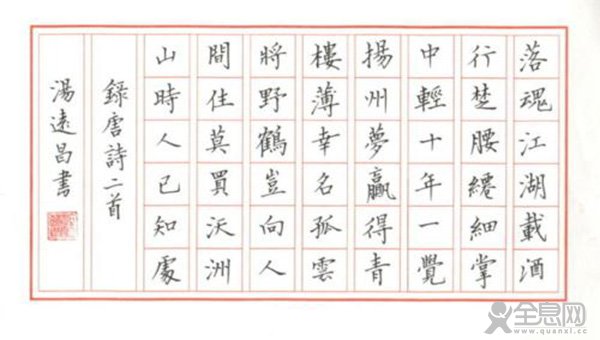 落魂江湖載酒
行楚腰纖細掌
中輕十年一覺
揚州夢贏得青
樓薄幸名孤雲
將野鶴豈向人
間住莫買沃洲
山時人已知處
錄唐詩二首
湯遠昌書
全息网
www.quanxi.cc